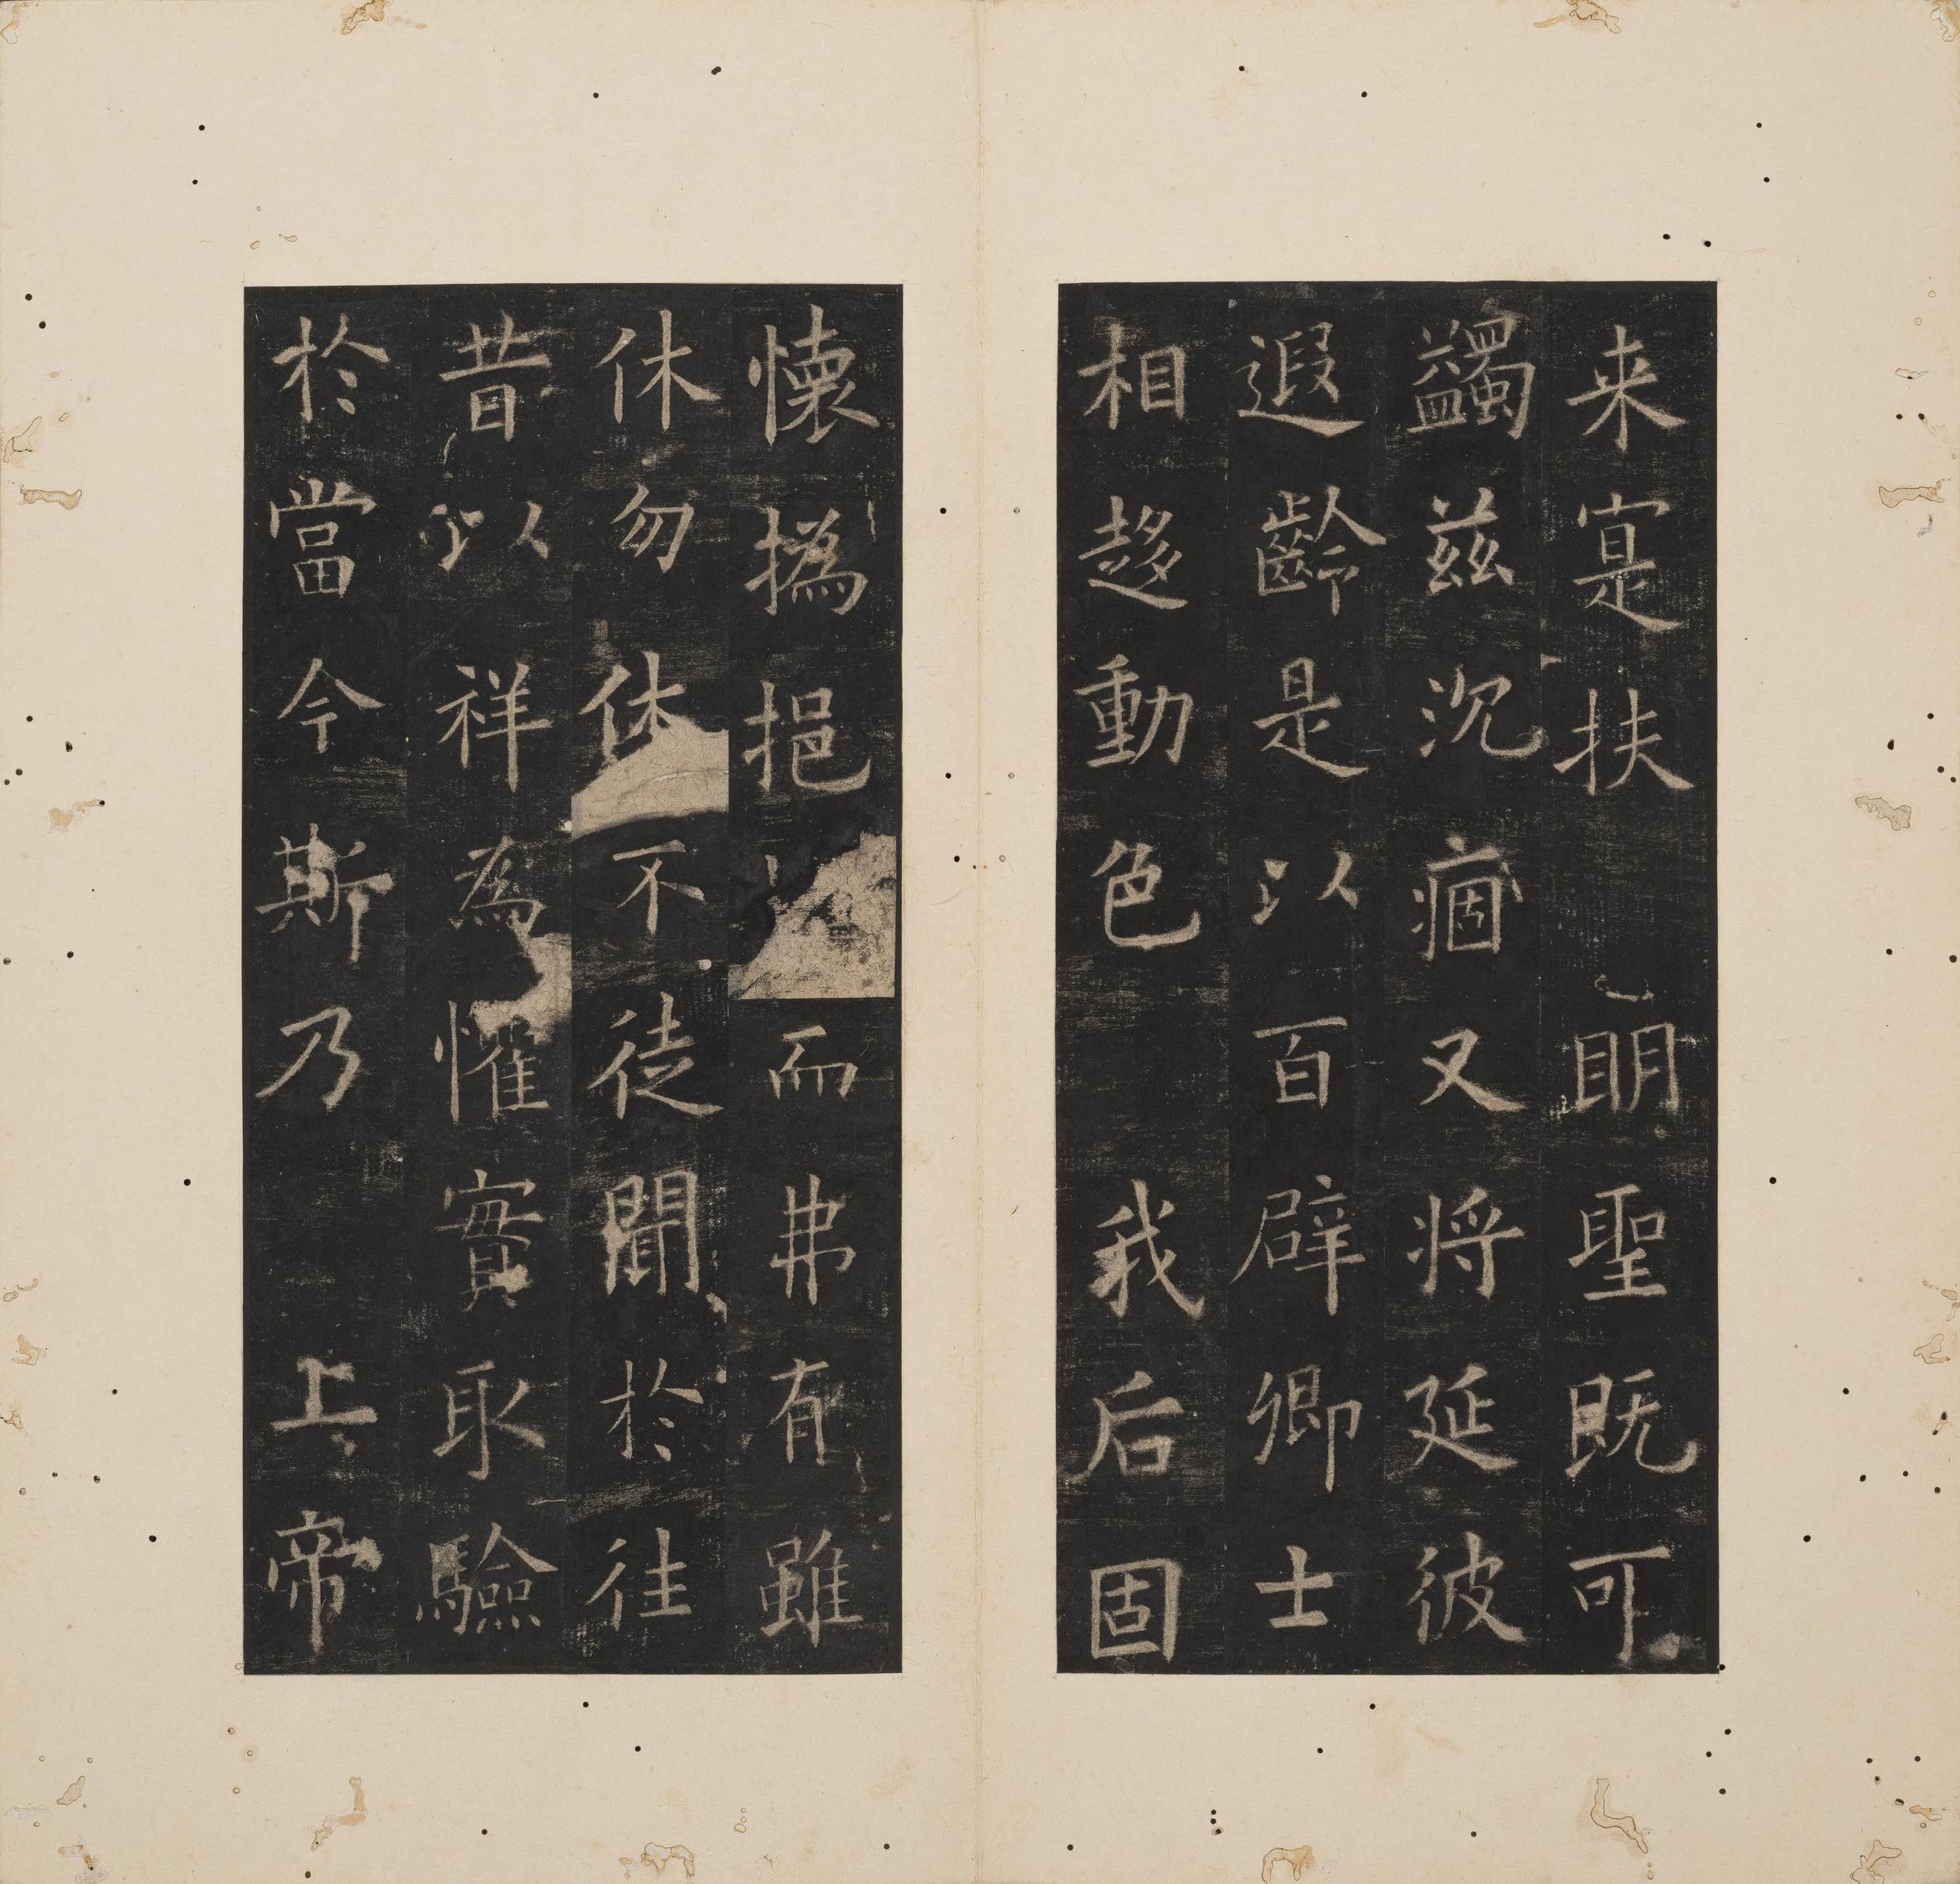 来寔扶明聖既可
蠲兹沉痼又将延彼
遐齡是以百辟卿士
相趍動色我后固
懷撝挹而弗有雖
休勿休不徒聞於往
昔以祥為懼實取驗
於當今斯乃上帝